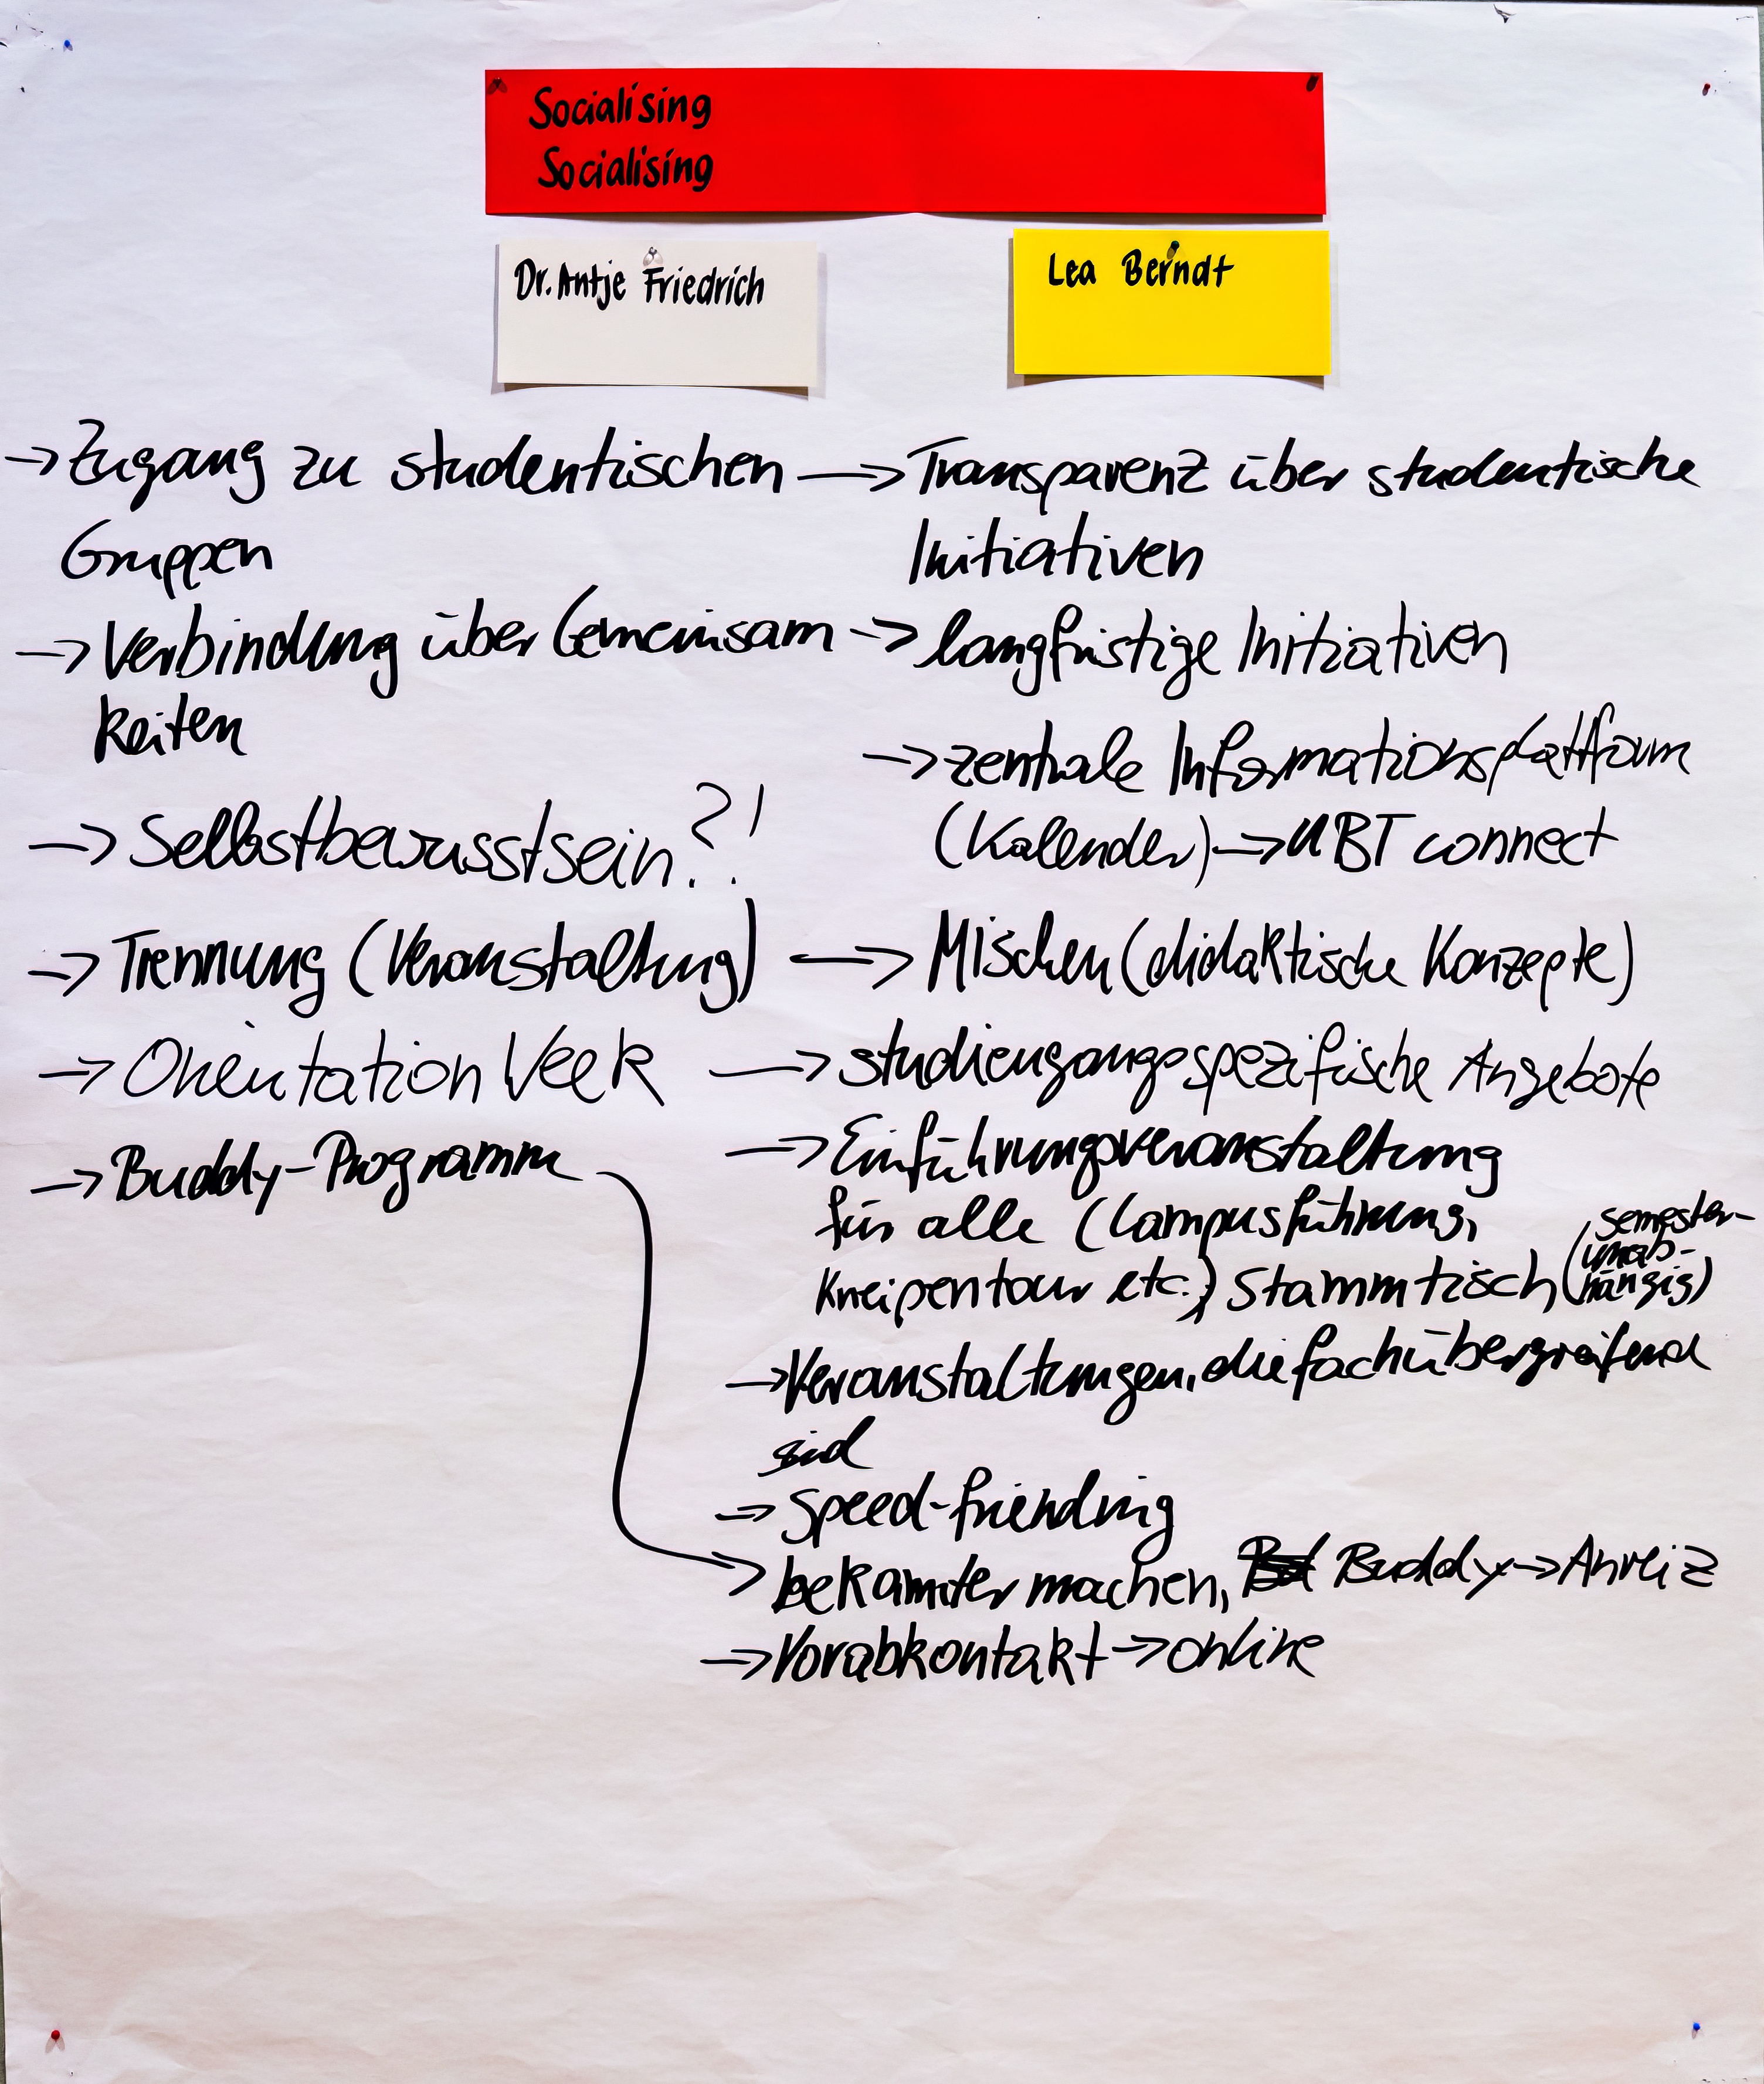 Socialising
Socialising
Dr. Antje Friedrich
Lea Berndt
→ Zugang zu studentischen
Gruppen
→ Verbindung über Gemeinsam
keiten
→ Selbstbewusstsein?!
→ Trennung (Veranstaltung)
→ Orientation Week
→ Buddy-Programm
→ Transparenz über studentische
Initiativen
→ langfristige Initiativen
→ zentrale Informationsplattform
(Kalender) → UBT connect
→ Mischen (didaktische Konzepte)
→ studiengangsspezifische Angebote
→ Einführungsveranstaltung
für alle (Campusführung,
Kneipentour etc.) Stammtisch (semester-
unab-
hängig)
→ Veranstaltungen, die fachübergreifend
sind
→ Speed-friending
→ bekannter machen, Buddy → Anreiz
→ Vorabkontakt → online